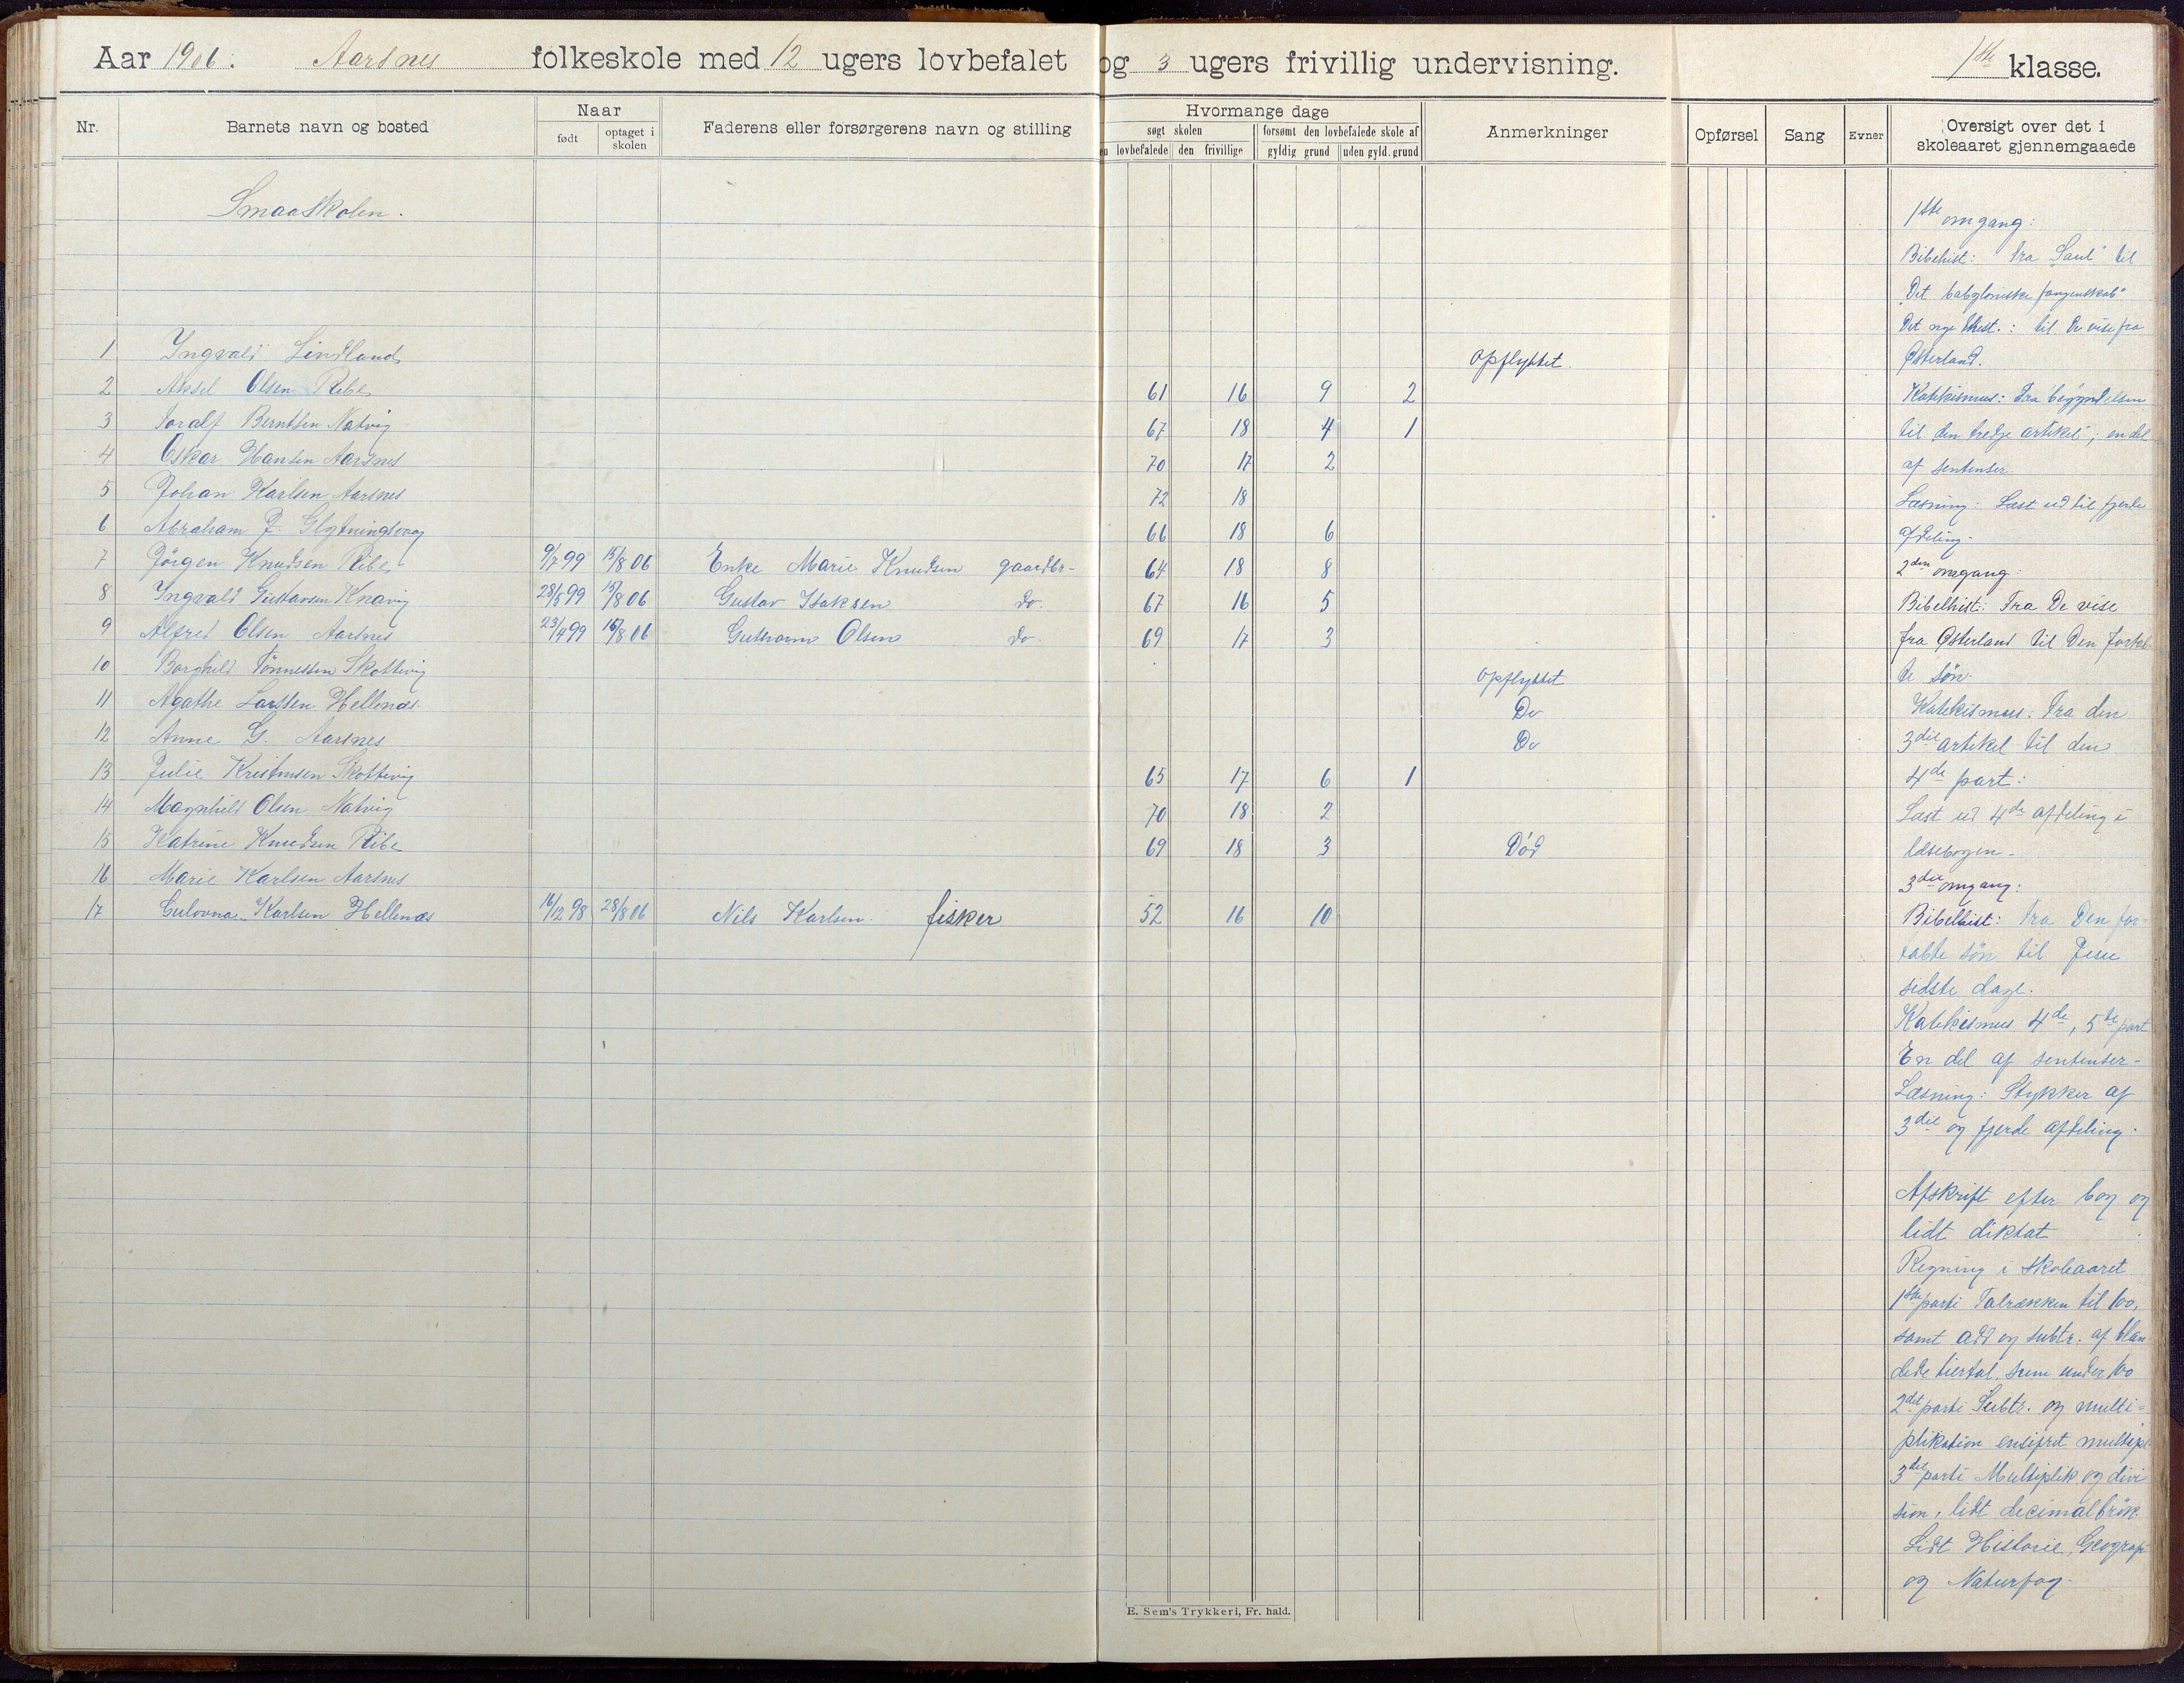 Aar 1906. Aarsnes folkeskole med 12 ugers lovbefalet og 3 ugers frivillig undervisning. 1ste klasse.
Nr. Barnets navn og bosted Naar Faderens eller forsørgerens navn og stilling Hvormange dage Anmerkninger Opførsel Sang Evner Oversigt over det i skoleaaret gjennemgaaede
født optaget i skolen søgt skolen forsømt den lovbefalede skole af
lovbefalede den frivillige gyldig grund uden gyld. grund
Smaaskolen.
1 Ingvald Lindland Opflyttet.
2 Aksel Olsen Ribe 61 16 9 2
3 Toralf Berntsen Natvig 67 18 4 1
4 Oskar Hansen Aarsnes 70 17 2
5 Johan Karlsen Aarsnes 72 18
6 Abraham J. 66 18 6
7 Jörgen Knudsen Ribe 9/7 99 15/8 06 Enke Marie Knudsen gaardbr- 64 18 8
8 Ingvald Gustavsen Knavig 28/5 99 15/8 06 Gustav Isaksen do. 67 16 5
9 Alfred Olsen Aarsnes 23/4 99 16/8 06 Guttorm Olsen do. 69 17 3
10 Borghild Tönnessen Skottevig Opflyttet
11 Agathe Larssen Hellenæs. Do
12 Anne G. Aarsnes Do
13 Julie Kristensen Skottevig 65 17 6 1
14 Magnhild Olsen Natvig 70 18 2
15 Katrine Knudsen Ribe 69 18 3 Död
16 Marie Karlsen Aarsnes
17 Gulovna Karlsen Hellenæs 16/12 98 28/8 06 Nils Karlsen. fisker 52 16 10
1ste omgang:
Bibelhist: fra "Saul" til
"Det babyloniske fangenskab"
Det nye test.: til De vise fra
Østerland.
Katekismus: Fra begyndelsen
til den tredje artikel; en del
af sentenser
Læsning: Læst ud til fjerde
afdeling.
2den omgang:
Bibelhist: Fra De vise
fra Østerland til Den fortab-
te sön.
Katekismus: Fra den
3die artikel til den
4de part:
Læst ud 4de afdeling i
læsebogen.
3die omgang:
Bibelhist: fra Den for-
tabte sön til Jesu
sidste dage.
Katekismus 4de, 5te part
En del af sentenser-
Læsning: Stykker af
3die og fjerde afdeling.
Afskrift efter bog og
lidt diktat
Regning i skoleaaret
1ste parti Talrækken til 100,
samt add og subtr. af blan
dede tiertal, sum under 100
2det parti Subtr. og multi-
plikation ensifret multipl.
3die parti Multiplik. og divi
sion, lidt decimalbrök.
Lidt Historie, Geografi
og Naturfag.
E. Sem's Trykkeri, Fr. hald.